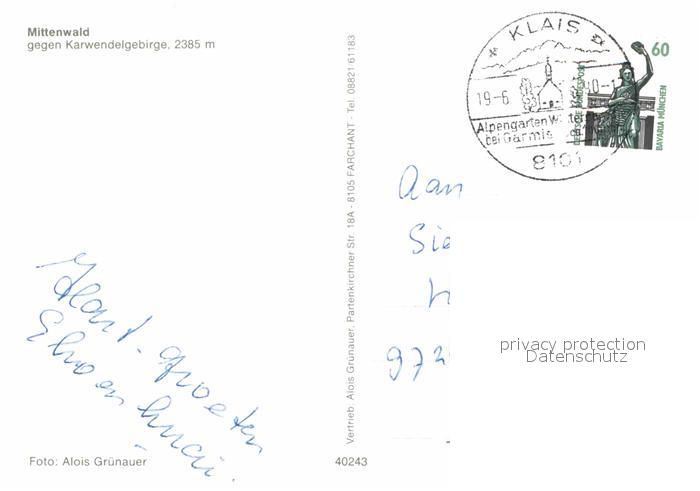 Mittenwald
gegen Karwendelgebirge, 2385 m
KLAIS
19-6
8101
Alpengarten
bei Garmis
DEUTSCHE BUNDESPOST
60
BAVARIA MÜNCHEN
Vertrieb: Alois Grünauer, Partenkirchner Str. 18A - 8105 FARCHANT - Tel. 08821/61183
Aan
Sie
h
972
groeten
privacy protection
Datenschutz
Foto: Alois Grünauer
40243